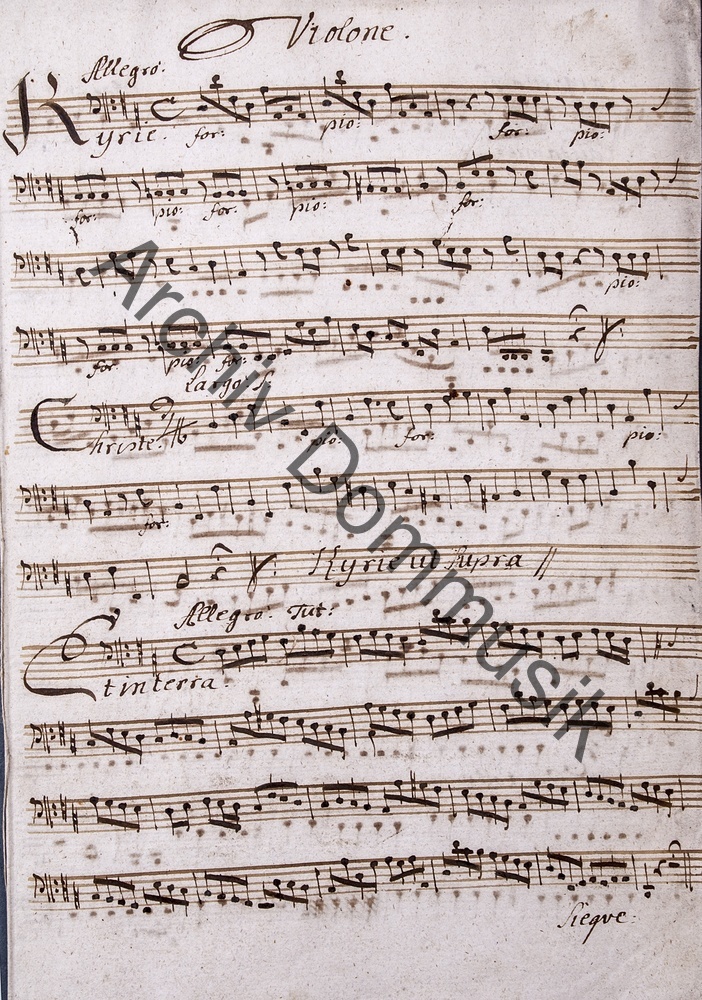 Violone.
Allegro.
Kyrie. for: pio: for: pio:
for: pio: for: pio: for:
pio:
for: pio: for:
Largo. S.
Christe. pio: for: pio:
for:
Kyrie ut supra
Allegro. Tut:
Et in terra.
Siegue.
Archiv Dommusik